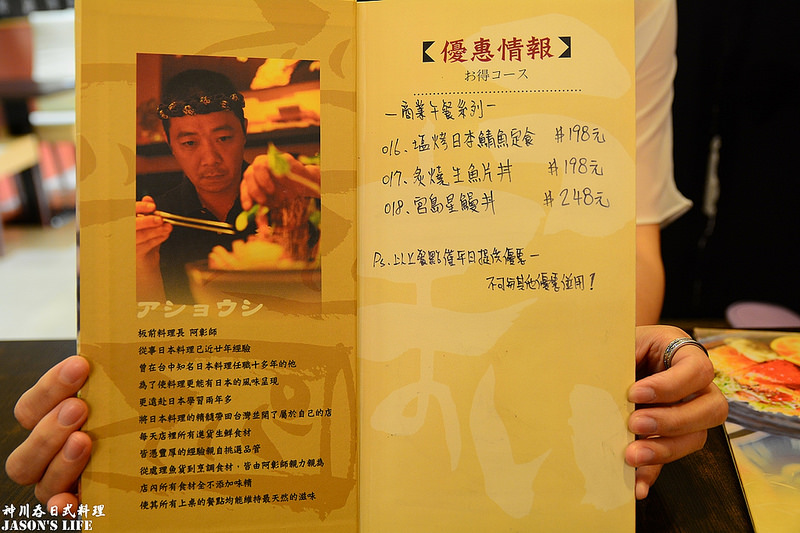 アショウシ
板前料理長 阿彰師
從事日本料理已近廿年經驗
曾在台中知名日本料理任職十多年的他
為了使料理更能有日本的風味呈現
更遠赴日本學習兩年多
將日本料理的精髓帶回台灣並開了屬於自己的店
每天店裡所有進貨生鮮食材
皆憑豐厚的經驗親自挑選品管
從處理魚貨到烹調食材，皆由阿彰師親力親為
店內所有食材全不添加味精
使其所有上桌的餐點均能維持最天然的滋味
【優惠情報】
お得コース
－商業午餐系列－
016、塩烤日本鯖魚定食 #198元
017、炙燒生魚片丼 #198元
018、宮島星鰻丼 #248元
Ps、以上餐點僅平日提供優惠－
不可與其他優惠併用！
神川吞日式料理
JASON'S LIFE